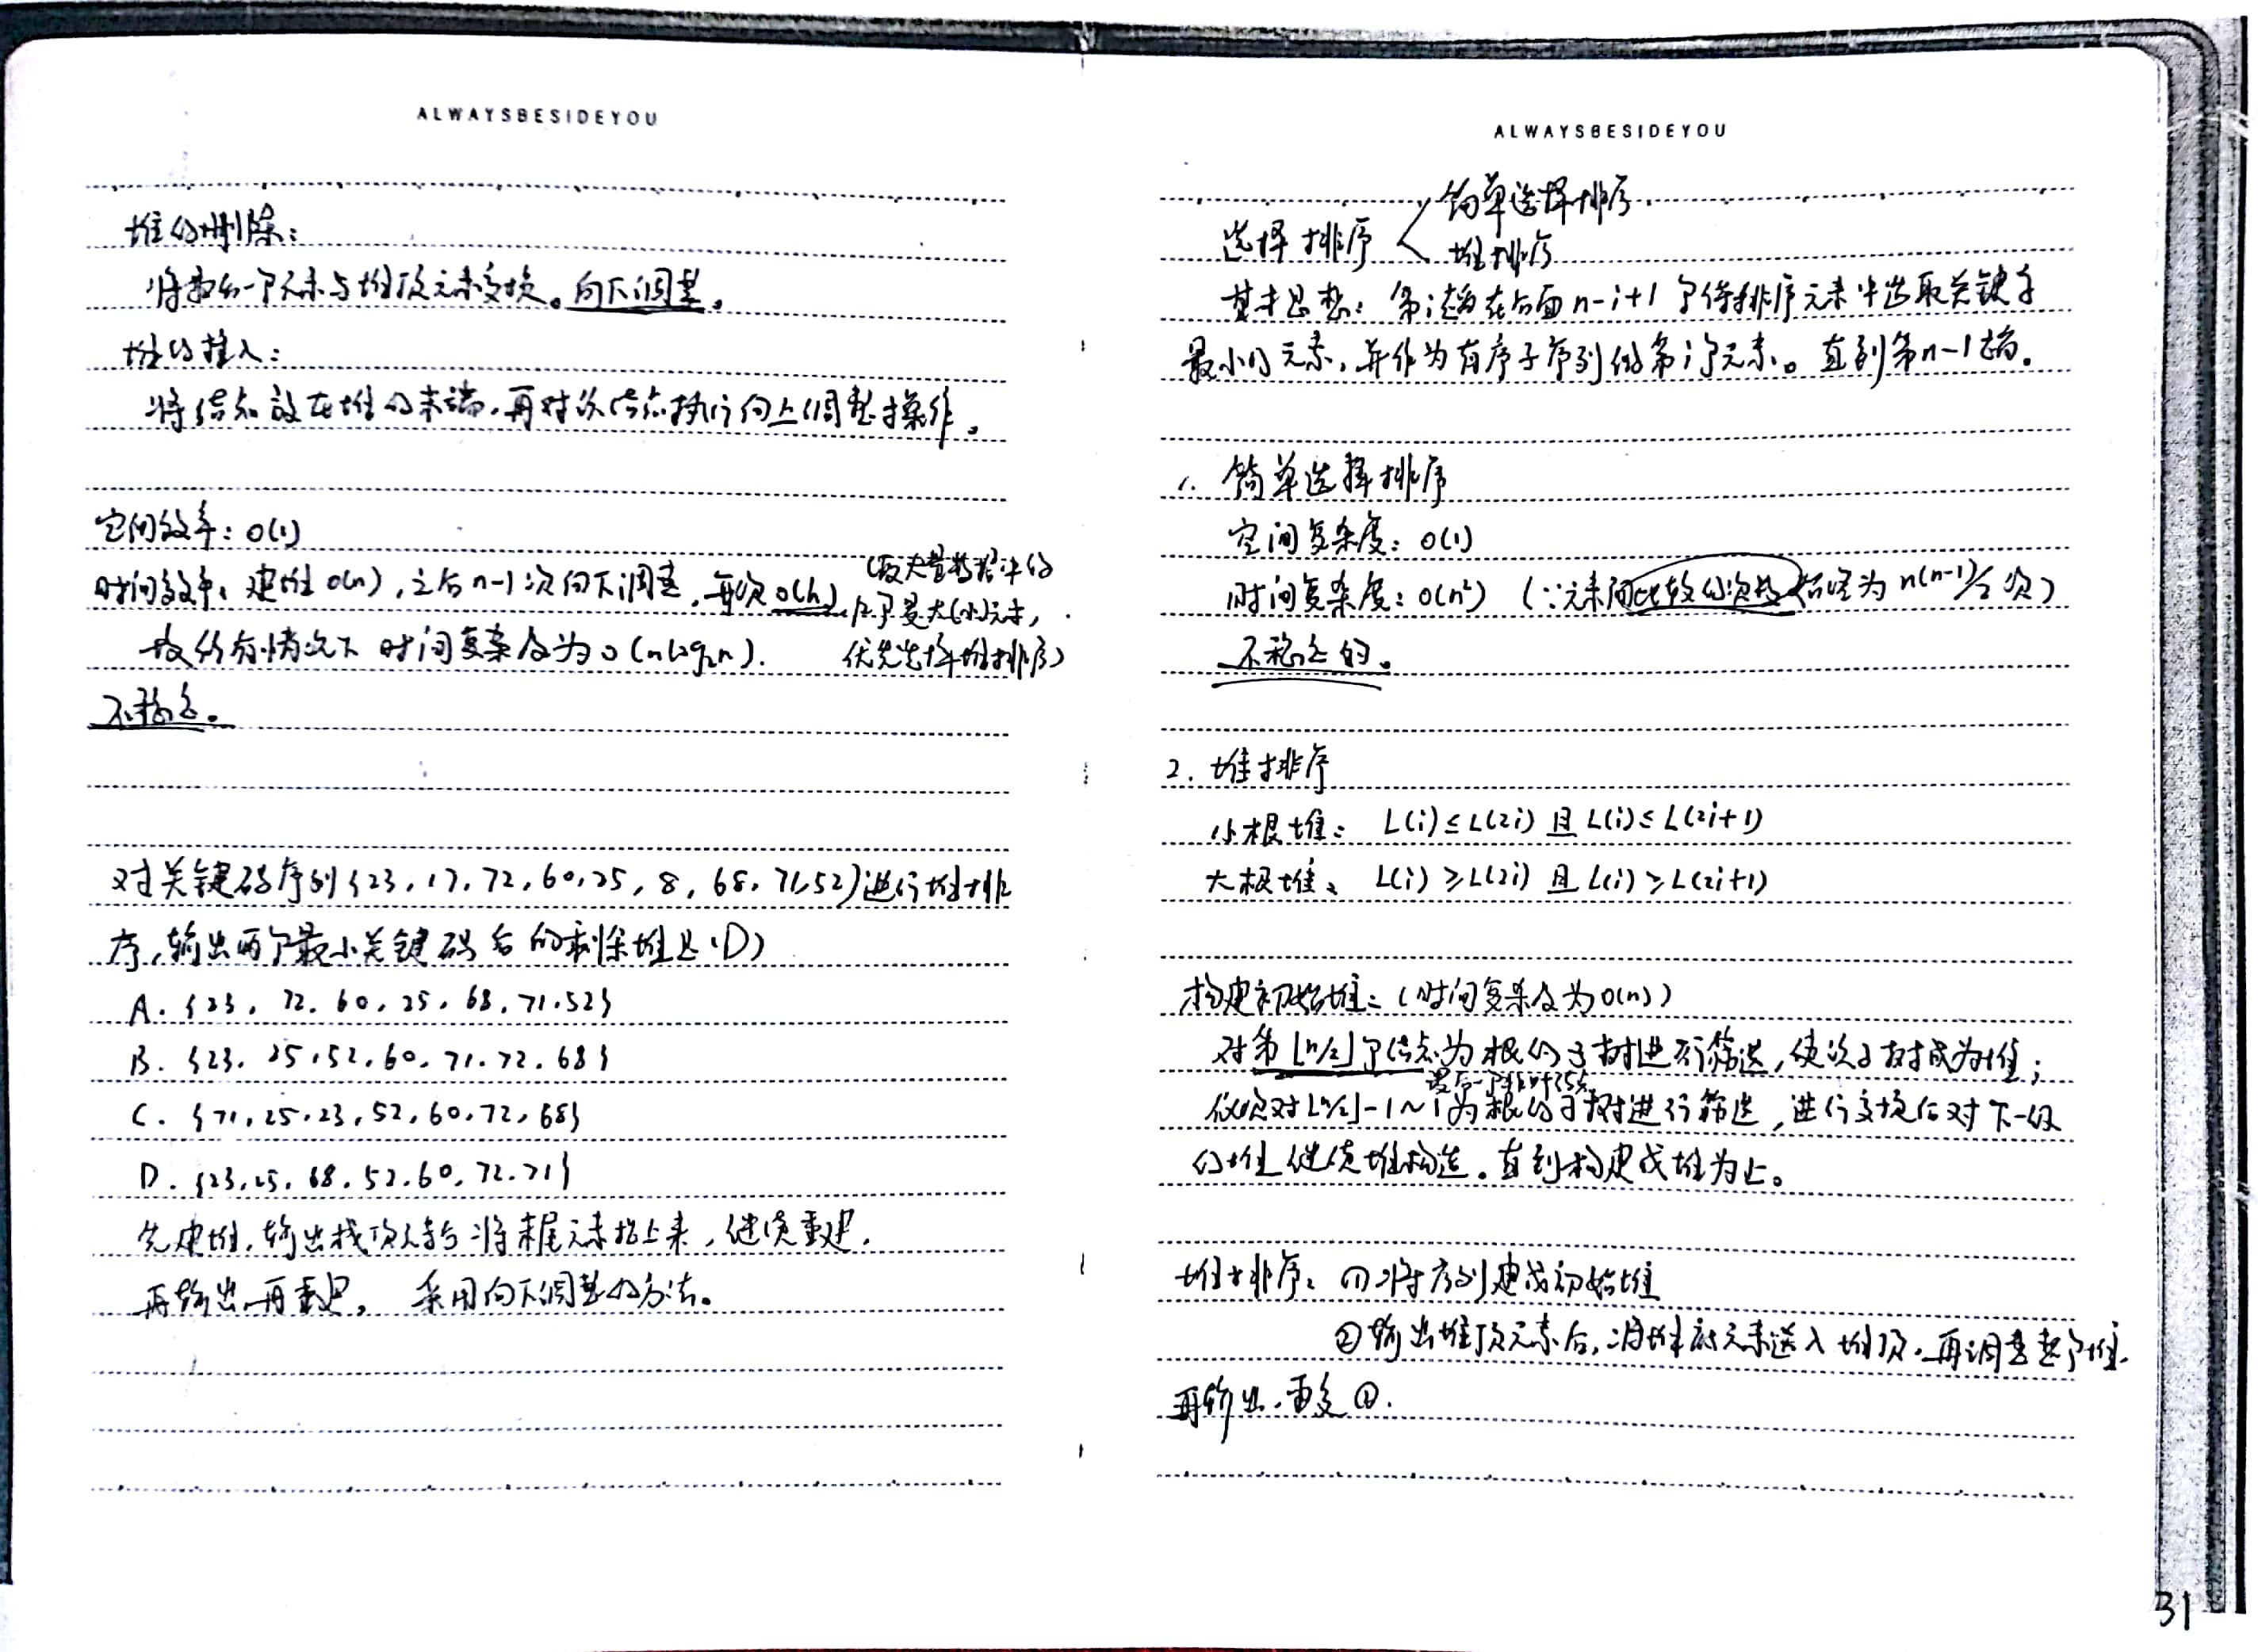 ALWAYSBESIDEYOU
堆的删除:
将最后一个元素与堆顶元素交换。向下调整。
堆的插入:
将结点放在堆的末端,再对次结点执行向上调整操作。
空间效率:O(1)
时间效率:建堆O(n),之后n-1次向下调整,每次O(h)
(取大量数据中的
几个最大(小)元素,
优先选择堆排序)
故所有情况下 时间复杂度为O(nlog₂n).
不稳定。
对关键码序列{23,17,72,60,25,8,68,71,52}进行堆排
序,输出两个最小关键码后的剩余堆是(D)
A. {23, 72. 60, 25, 68, 71.52}
B. {23, 25,52,60,71.72.68}
C. {71,25,23,52,60,72,68}
D. {23,25,68,52.60,72.71}
先建堆,输出栈顶后将末尾元素抬上来,继续重建.
再输出,再重建, 采用向下调整的方法。
ALWAYSBESIDEYOU
选择排序 简单选择排序
堆排序
基本思想: 第i趟在后面n-i+1个待排序元素中选取关键字
最小的元素,并作为有序子序列的第i个元素。直到第n-1趟。
1. 简单选择排序
空间复杂度:O(1)
时间复杂度:O(n²) (∵元素间比较的次数始终为n(n-1)/2次)
不稳定的。
2. 堆排序
小根堆: L(i)≤L(2i) 且L(i)≤L(2i+1)
大根堆: L(i)≥L(2i) 且L(i)≥L(2i+1)
构建初始堆:(时间复杂度为O(n))
对第⌊n/2⌋个结点为根的子树进行筛选,使次子树成为堆;
最后一个非叶结点
依次对⌊n/2⌋-1~1为根的子树进行筛选,进行交换后对下一级
的堆继续堆构造。直到构建成堆为止。
堆排序: ①将序列建成初始堆
②输出堆顶元素后,将堆底元素送入堆顶.再调整整个堆.
再输出.重复②.
31